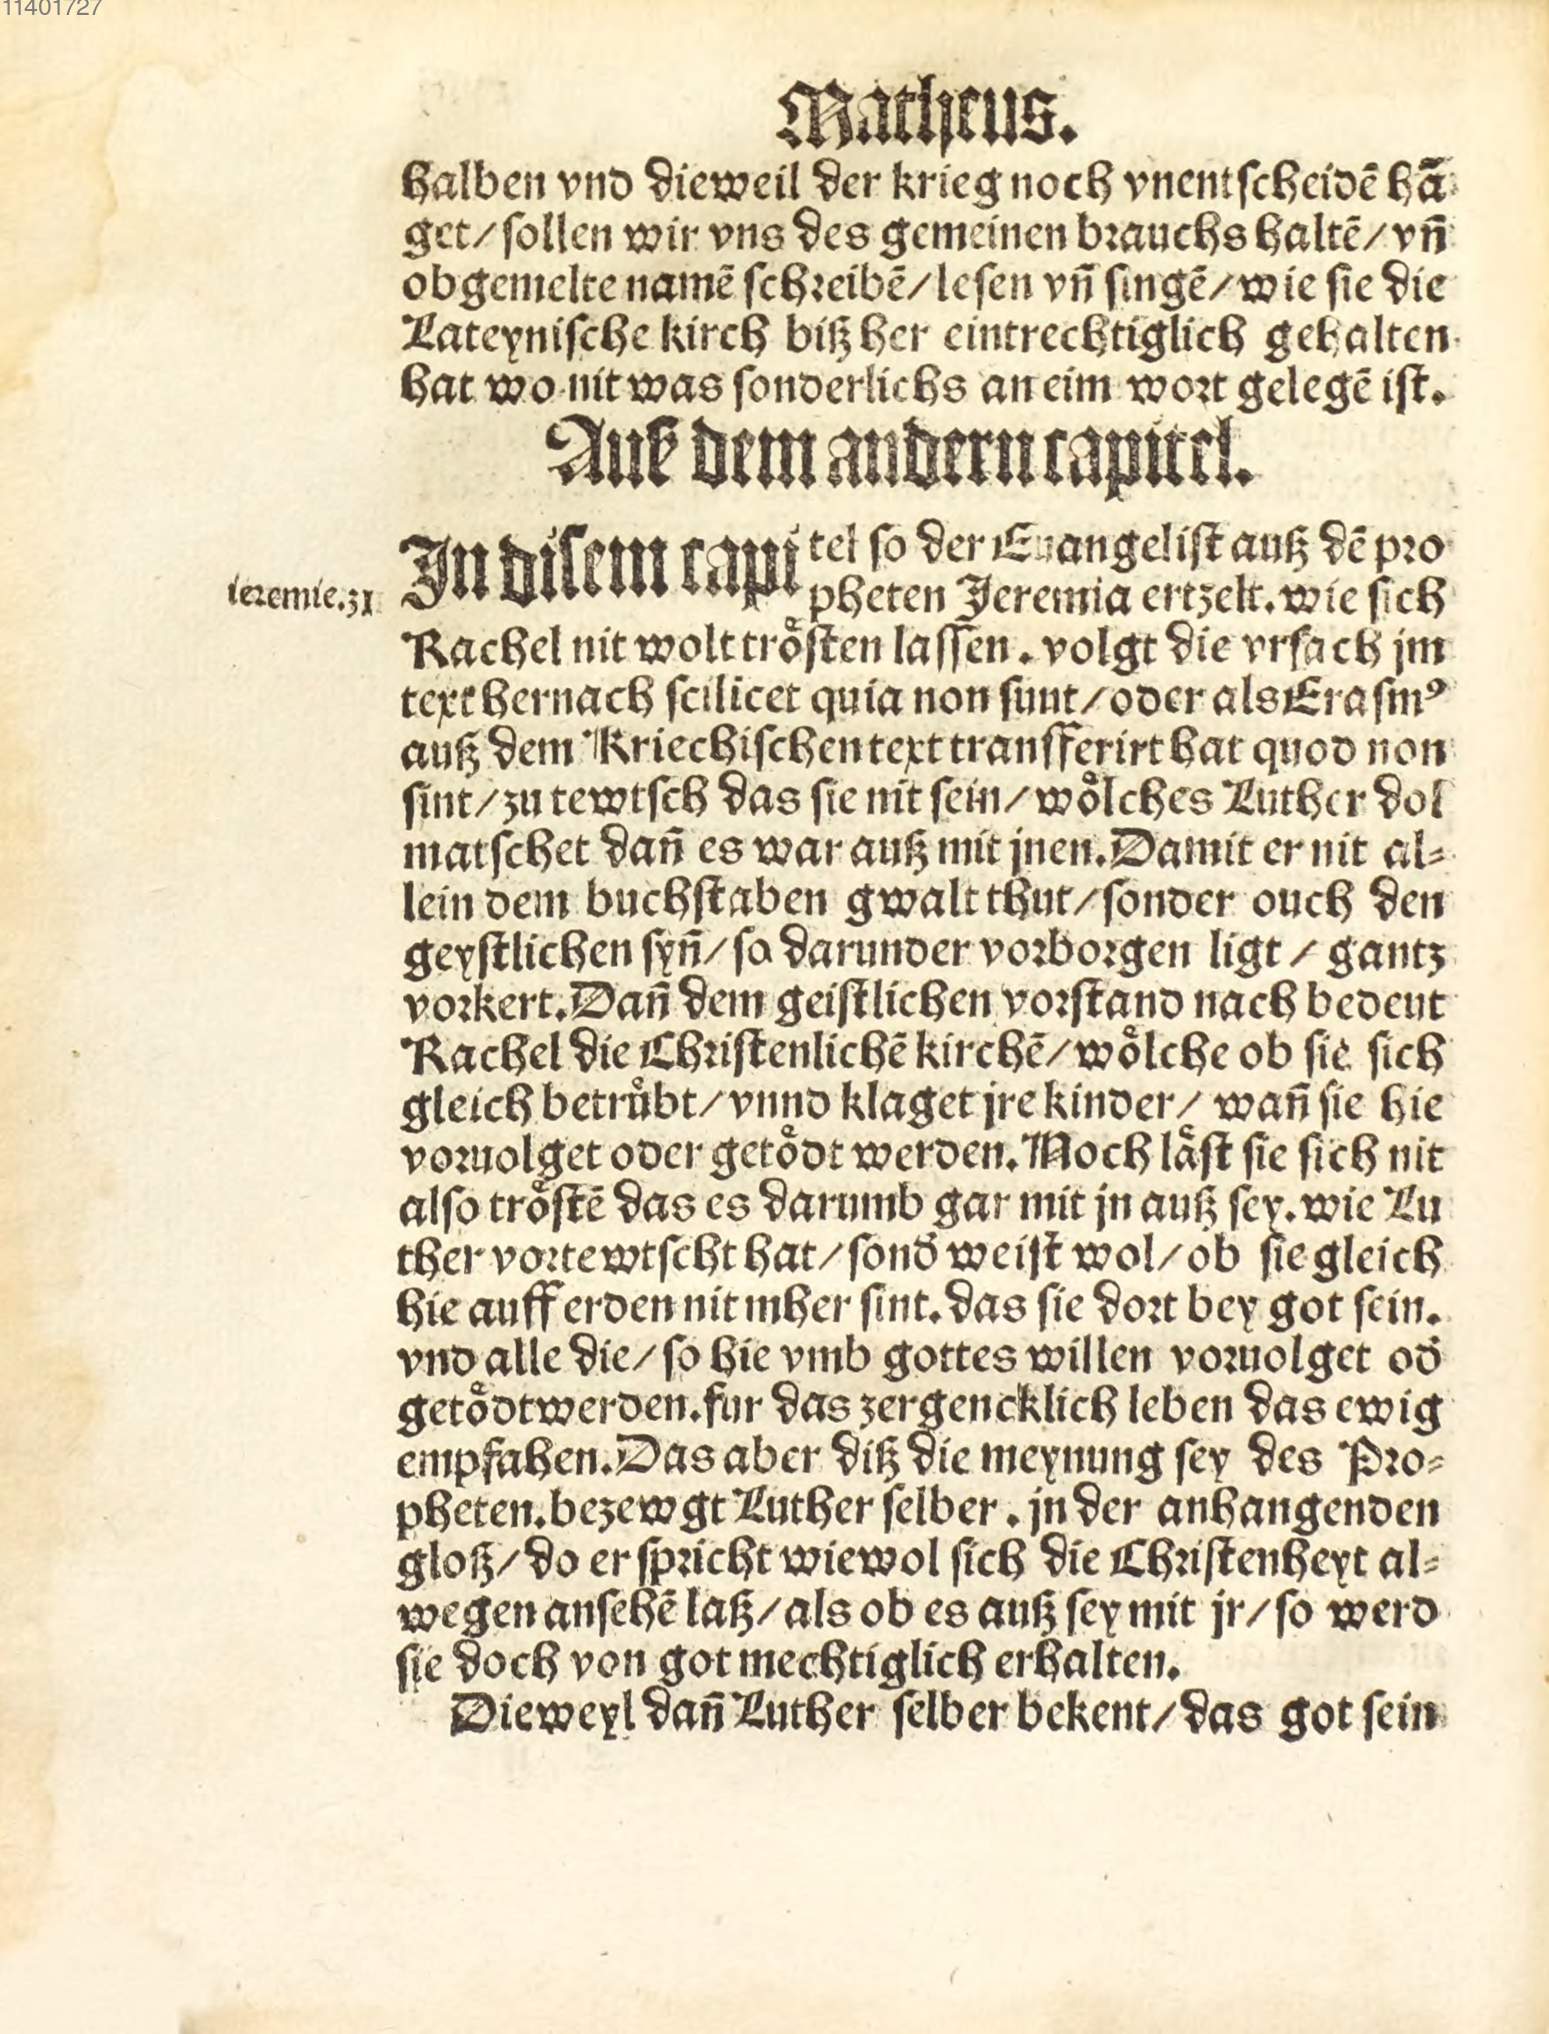 11401727
Matheus.
halben vnd dieweil der krieg noch vnentscheidē hā
get/ sollen wir vns des gemeinen brauchs haltē/ vn̄
obgemelte namē schreibē/ lesen vn̄ singē/ wie sie die
Lateynische kirch biß her eintrechtiglich gehalten
hat wo nit was sonderlichs an eim wort gelegē ist.
Auß dem andern capitel.
In disem capi tel so der Euangelist auß dē pro
ieremie.31 pheten Jeremia ertzelt. wie sich
Rachel nit wolt troͤsten lassen. volgt die vrsach jm
text hernach scilicet quia non sunt/ oder als Erasmꝰ
auß dem Kriechischen text transferirt hat quod non
sint/ zu tewtsch das sie nit sein/ woͤlches Luther dol
matschet dan̄ es war auß mit jnen. Damit er nit al⸗
lein dem buchstaben gwalt thut/ sonder ouch den
geystlichen syn̄/ so darunder vorborgen ligt/ gantz
vorkert. Dan̄ dem geistlichen vorstand nach bedeut
Rachel die Christenlichē kirchē/ woͤlche ob sie sich
gleich betruͤbt/ vnnd klaget jre kinder/ wan̄ sie hie
voruolget oder getoͤdt werden. Noch laͤst sie sich nit
also troͤstē das es darumb gar mit jn auß sey. wie Lu
ther vortewtscht hat/ sond̛ weist wol/ ob sie gleich
hie auff erden nit mher sint. das sie dort bey got sein.
vnd alle die/ so hie vmb gottes willen voruolget od̛
getoͤdt werden. fur das zergencklich leben das ewig
empfahen. Das aber diß die meynung sey des Pro⸗
pheten. bezewgt Luther selber. jn der anhangenden
gloß/ do er spricht wiewol sich die Christenheyt al⸗
wegen ansehē laß/ als ob es auß sey mit jr/ so werd
sie doch von got mechtiglich erhalten.
Dieweyl dan̄ Luther selber bekent/ das got sein